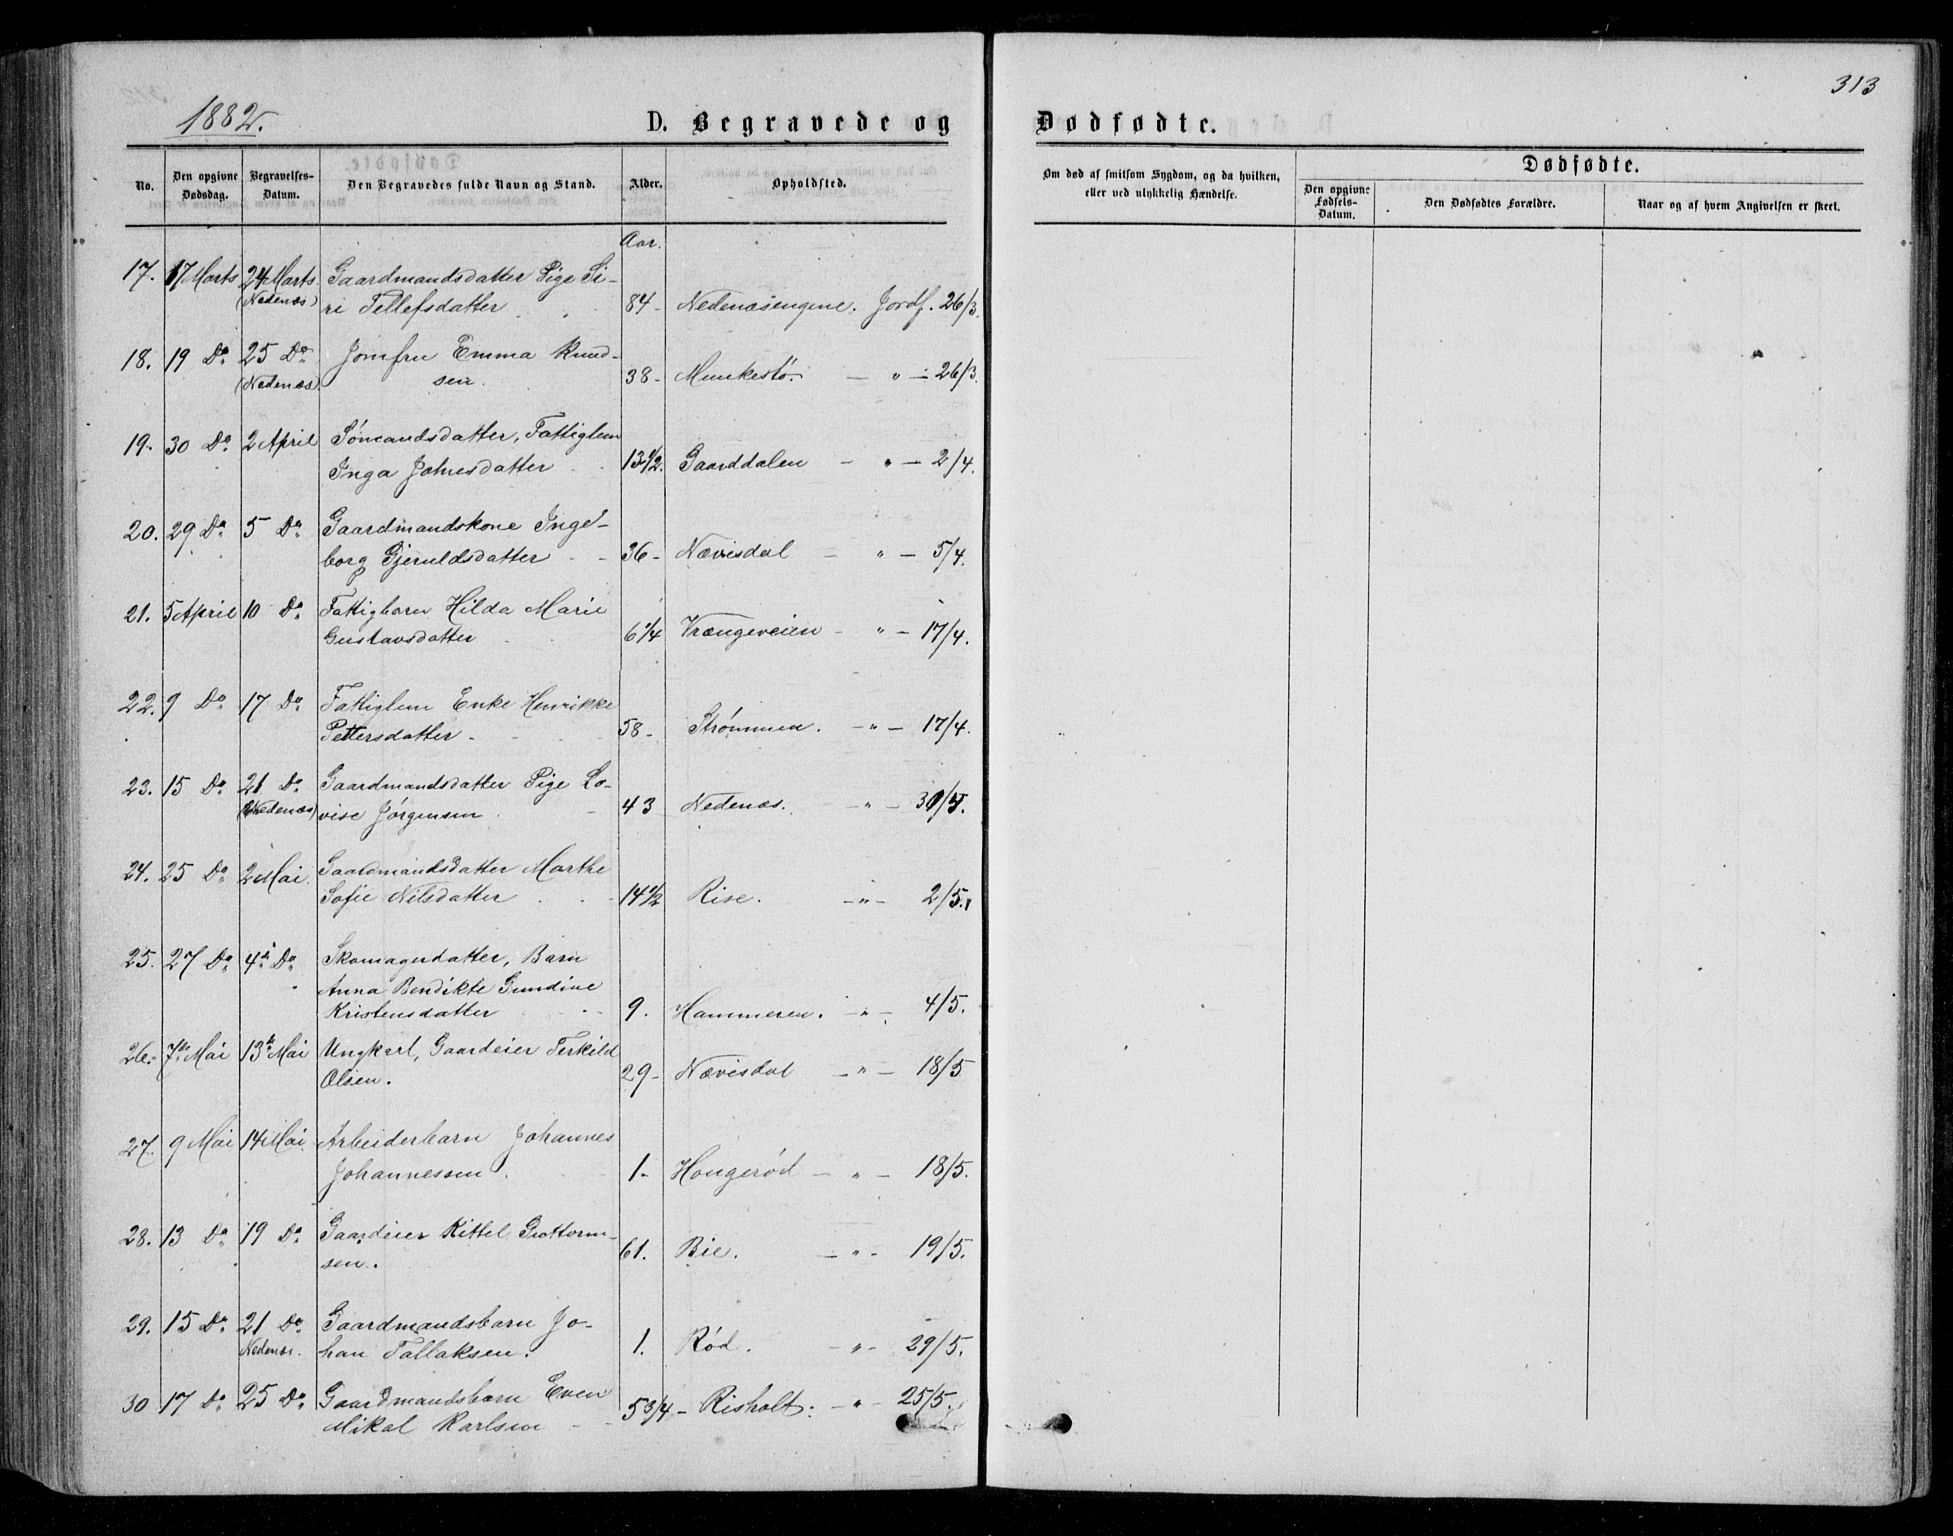 313
1882.
D. Begravede og Dødfødte.
No. Den opgivne Dødsdag. Begravelses-Datum. Den Begravedes fulde Navn og Stand. Alder. Opholdsted.
Om død af smitsom Sygdom, og da hvilken, eller ved ulykkelig Hændelse.
Dødfødte.
Den opgivne Fødsels-Datum. Den Dødfødtes Forældre. Naar og af hvem Angivelsen er skeet.
Aar.
17. 17 Marts 24 Marts Gaardmandsdatter Pige Si-
(Nedenæs) ri Tellefsdatter 84 - Nedenæsengene. Jordf. 26/3.
18. 19 Do 25 Do Jomfru Emma Knud-
(Nedenæs) sen. 38 - Munkestø. — " — 26/3.
19. 30 Do 2 April Sømandsdatter, Fattiglem
Inga Johnesdatter 13 1/2. Gaarddalen — " — 2/4.
20. 29 Do 5 Do Gaardmandskone Inge-
borg Gjeruldsdatter 36 - Nævisdal — " — 5/4.
21. 5 April 10 Do Fattigbarn Hilda Marie
Gustavsdatter 6 1/4 Vrængeveien — " — 17/4.
22. 9 Do 17 Do Fattiglem Enke Henrikke
Pettersdatter 58 - Strømmen. — " — 17/4.
23. 15 Do 21 Do Gaardmandsdatter Pige Lo-
(Nedenæs) vise Jørgensen 43 Nedenæs. — " — 30/4.
24. 25 Do 2 Mai Gaardmandsdatter Marthe
Sofie Nilsdatter 14 1/2 Rise. — " — 2/5.
25. 27 Do 4de Do Skomagerdatter, Barn
Anna Bendikte Gundine
Kristensdatter 9. Hammeren. — " — 4/5.
26. 7de Mai 13de Mai Ungkarl, Gaardeier Terkild
Olsen. 29 - Nævisdal — " — 18/5.
27. 9 Mai 14 Mai Arbeiderbarn Johannes
Johannessen. 1. Hougerød — " — 18/5.
28. 13 Do 19 Do Gaardeier Kittel Guttorm-
sen. 61. Bie. — " — 19/5.
29. 15 Do 21 Do Gaardmandsbarn Jo-
Nedenæs. han Tallaksen. 1. Rød. — " — 29/5.
30 17 Do 25 Do Gaardmandsbarn Even
Mikal Karlsen 5 3/4 - Risholt. — " — 25/5.